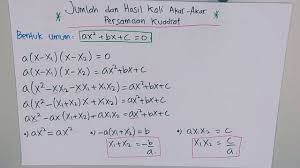 * Jumlah dan Hasil Kali Akar-Akar
Persamaan Kuadrat *
Bentuk Umum: ax² + bx + c = 0
a(x-x₁)(x-x₂) = 0
a(x-x₁)(x-x₂) = ax²+bx+c
a(x²-x₂x-xx₁+x₁x₂) = ax²+bx+c
a(x²-(x₁+x₂)x+x₁x₂) = ax²+bx+c
ax²-ax(x₁+x₂)+ax₁x₂ = ax²+bx+c
•) ax² = ax² •) -a(x₁+x₂) = b •) ax₁x₂ = c
x₁+x₂ = -b/a x₁x₂ = c/a